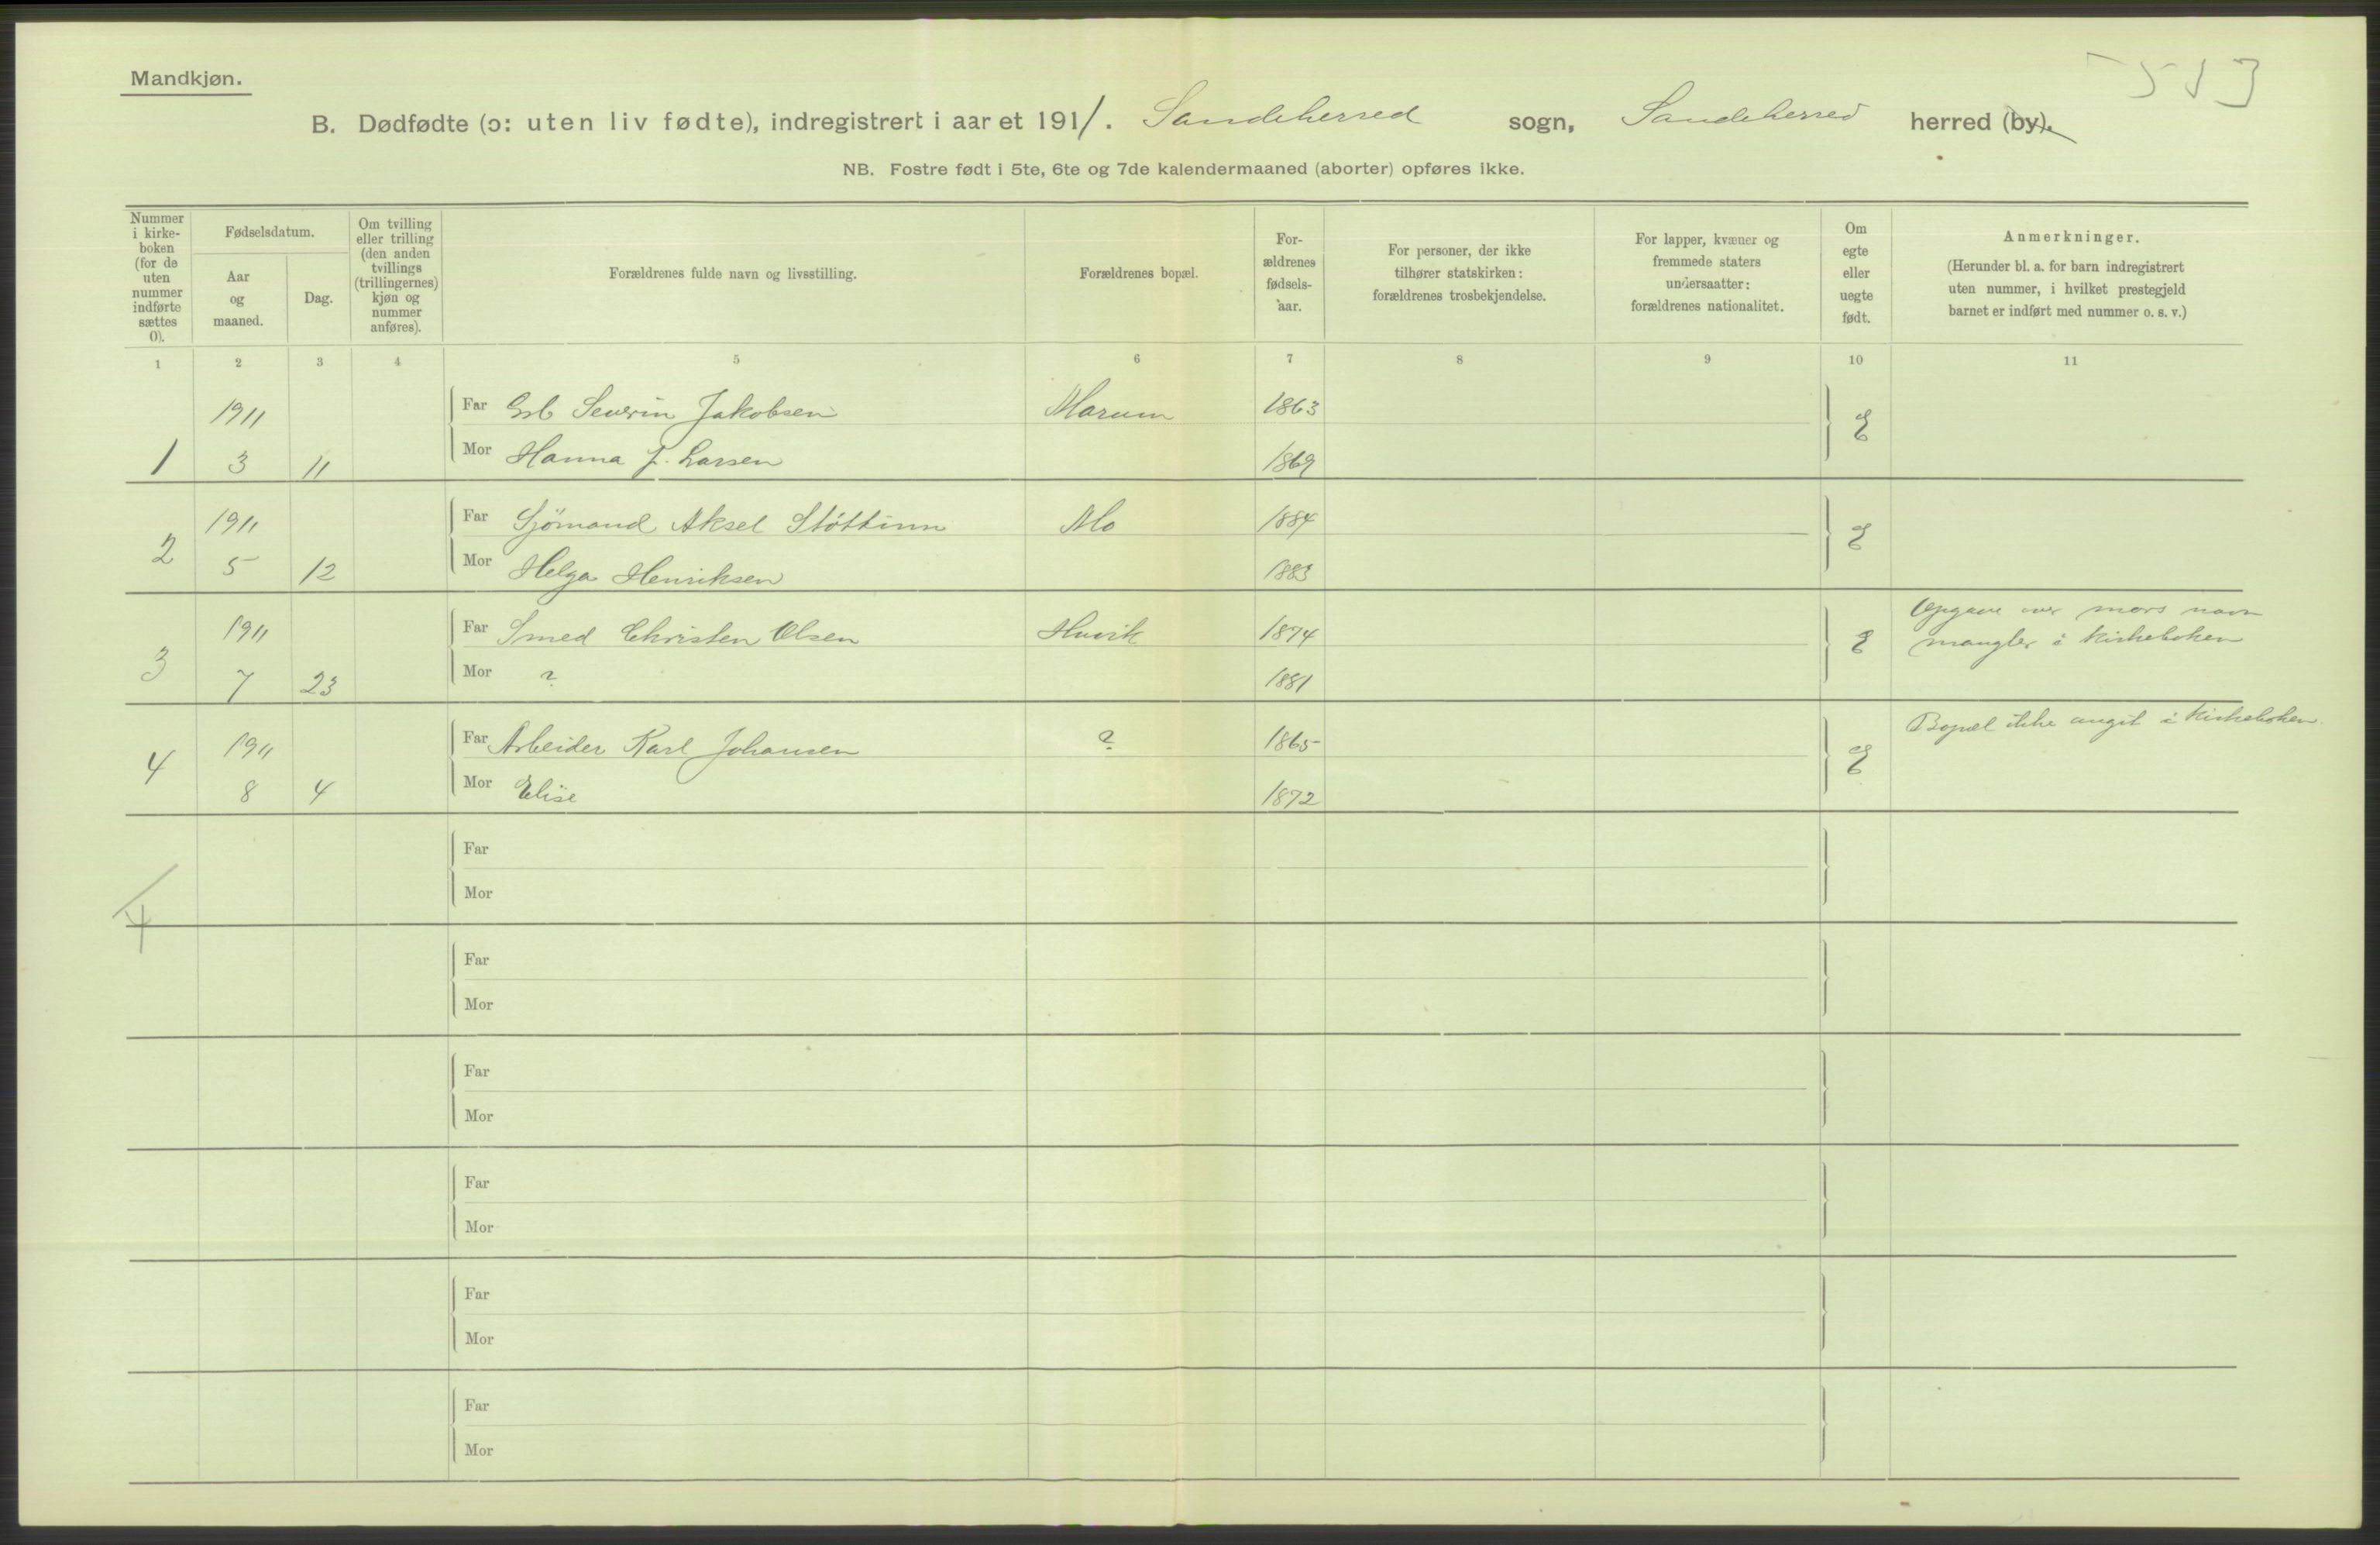 Mandkjøn.
513
B. Dødfødte (ɔ: uten liv fødte), indregistrert i aaret 1911. Sandeherred sogn, Sandeherred herred (by).
NB. Fostre født i 5te, 6te og 7de kalendermaaned (aborter) opføres ikke.
Nummer
i kirke-
boken
(for de
uten
nummer
indførte
sættes
0).
Fødselsdatum.
Aar
og
maaned.
Dag.
Om tvilling
eller trilling
(den anden
tvillings
(trillingernes)
kjøn og
nummer
anføres).
Forældrenes fulde navn og livsstilling.
Forældrenes bopæl.
For-
ældrenes
fødsels-
aar.
For personer, der ikke
tilhører statskirken:
forældrenes trosbekjendelse.
For lapper, kvæner og
fremmede staters
undersaatter:
forældrenes nationalitet.
Om
egte
eller
uegte
født.
Anmerkninger.
(Herunder bl. a. for barn indregistrert
uten nummer, i hvilket prestegjeld
barnet er indført med nummer o. s. v.)
1 2 3 4 5 6 7 8 9 10 11
1911 Far Severin Jakobsen Marum 1863 E
1 3 11 Mor Hanna J. Larsen 1869
1911 Far Sjömand Aksel Stöttinn Mo 1884 E
2 5 12 Mor Helga Henriksen 1883
1911 Far Smed Christen Olsen Huvik 1874 E Opgave over mors navn
mangler i kirkeboken
3 7 23 Mor ? 1881
1911 Far Arbeider Karl Johansen ? 1865 E Bopæl ikke angit i kirkeboken.
4 8 4 Mor Elise 1872
Far
Mor
4
Far
Mor
Far
Mor
Far
Mor
Far
Mor
Far
Mor